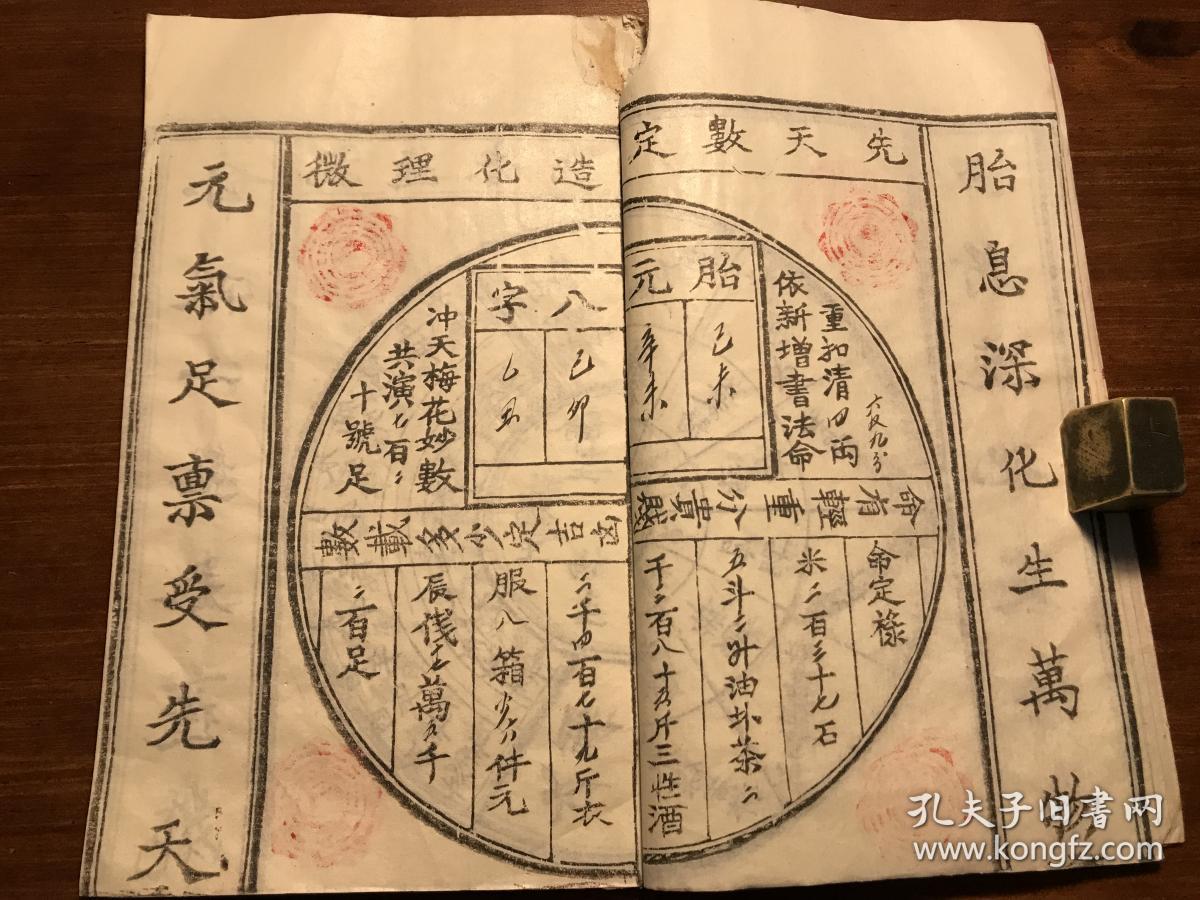 胎息深化生萬物
先天數定
造化理微
重扣清四兩
六錢九分
依新增書法命
胎元
己未
辛未
八字
己卯
乙丑
冲天梅花妙數
共演七百二
十號足
命有輕重分貴賤
凶吉定少多載數
命定祿
米二百三十七石
五斗二升油外茶二
千二百八十五斤三牲酒
二千四百七十九斤衣
服八箱少六件元
辰伐七萬五千
二百足
元氣足禀受先天
孔夫子旧书网
www.kongfz.com